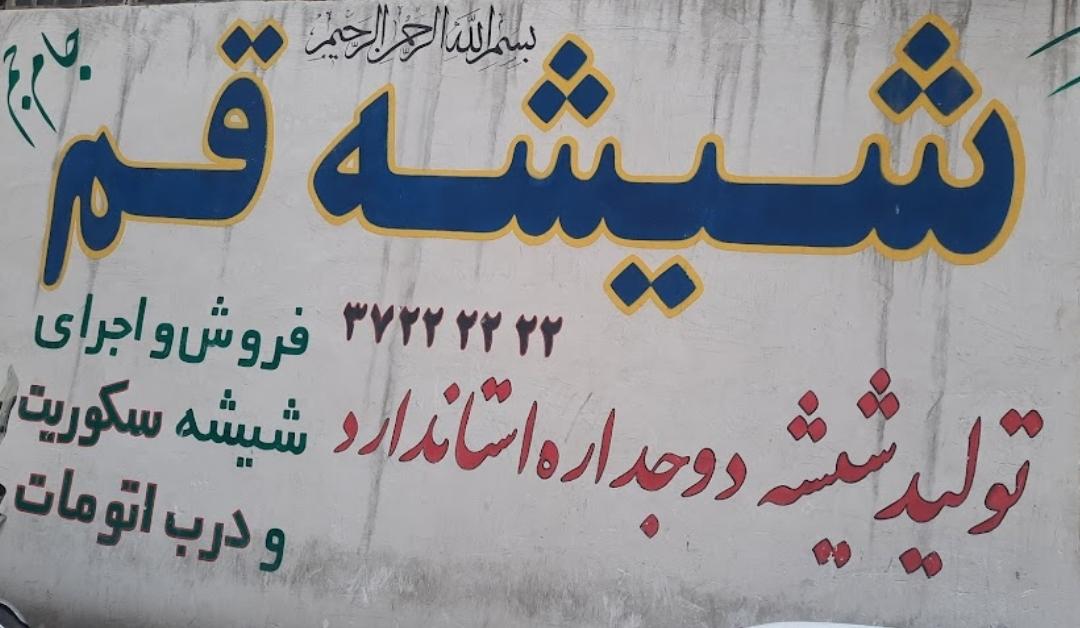 بسم الله الرحمن الرحیم
جام جم
شیشه قم
۳۷۲۲ ۲۲ ۲۲
تولید شیشه دوجداره استاندارد
فروش و اجرای
شیشه سکوریت
و درب اتومات